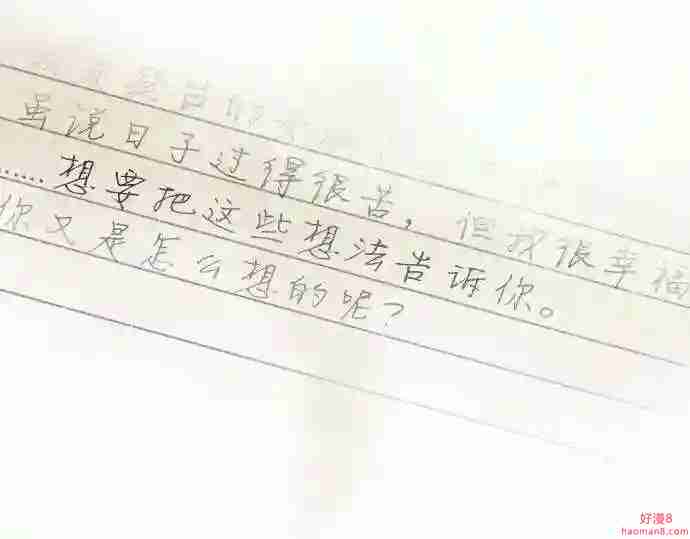 虽说日子过得很苦，但我很幸福
……想要把这些想法告诉你。
你又是怎么想的呢？
好漫8
haoman8.com